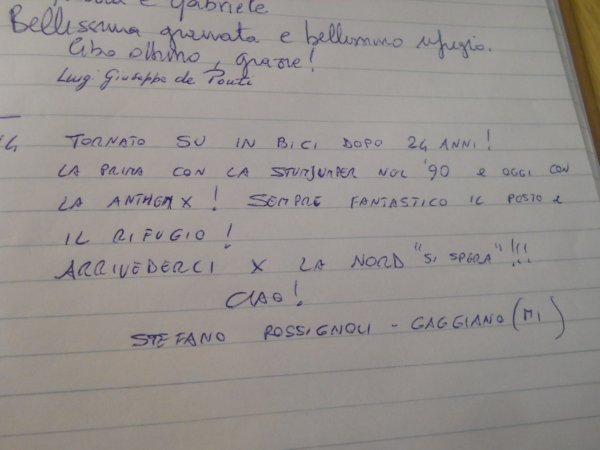 e Gabriele
Bellissima giornata e bellissimo rifugio.
Cibo ottimo, grazie!
Luigi Giuseppe de Ponti
TORNATO SU IN BICI DOPO 24 ANNI!
LA PRIMA CON LA STUMJUMPER NEL '90 E OGGI CON
LA ANTHEM X! SEMPRE FANTASTICO IL POSTO E
IL RIFUGIO!
ARRIVEDERCI X LA NORD "SI SPERA"!!!
CIAO!
STEFANO ROSSIGNOLI - GAGGIANO (MI)